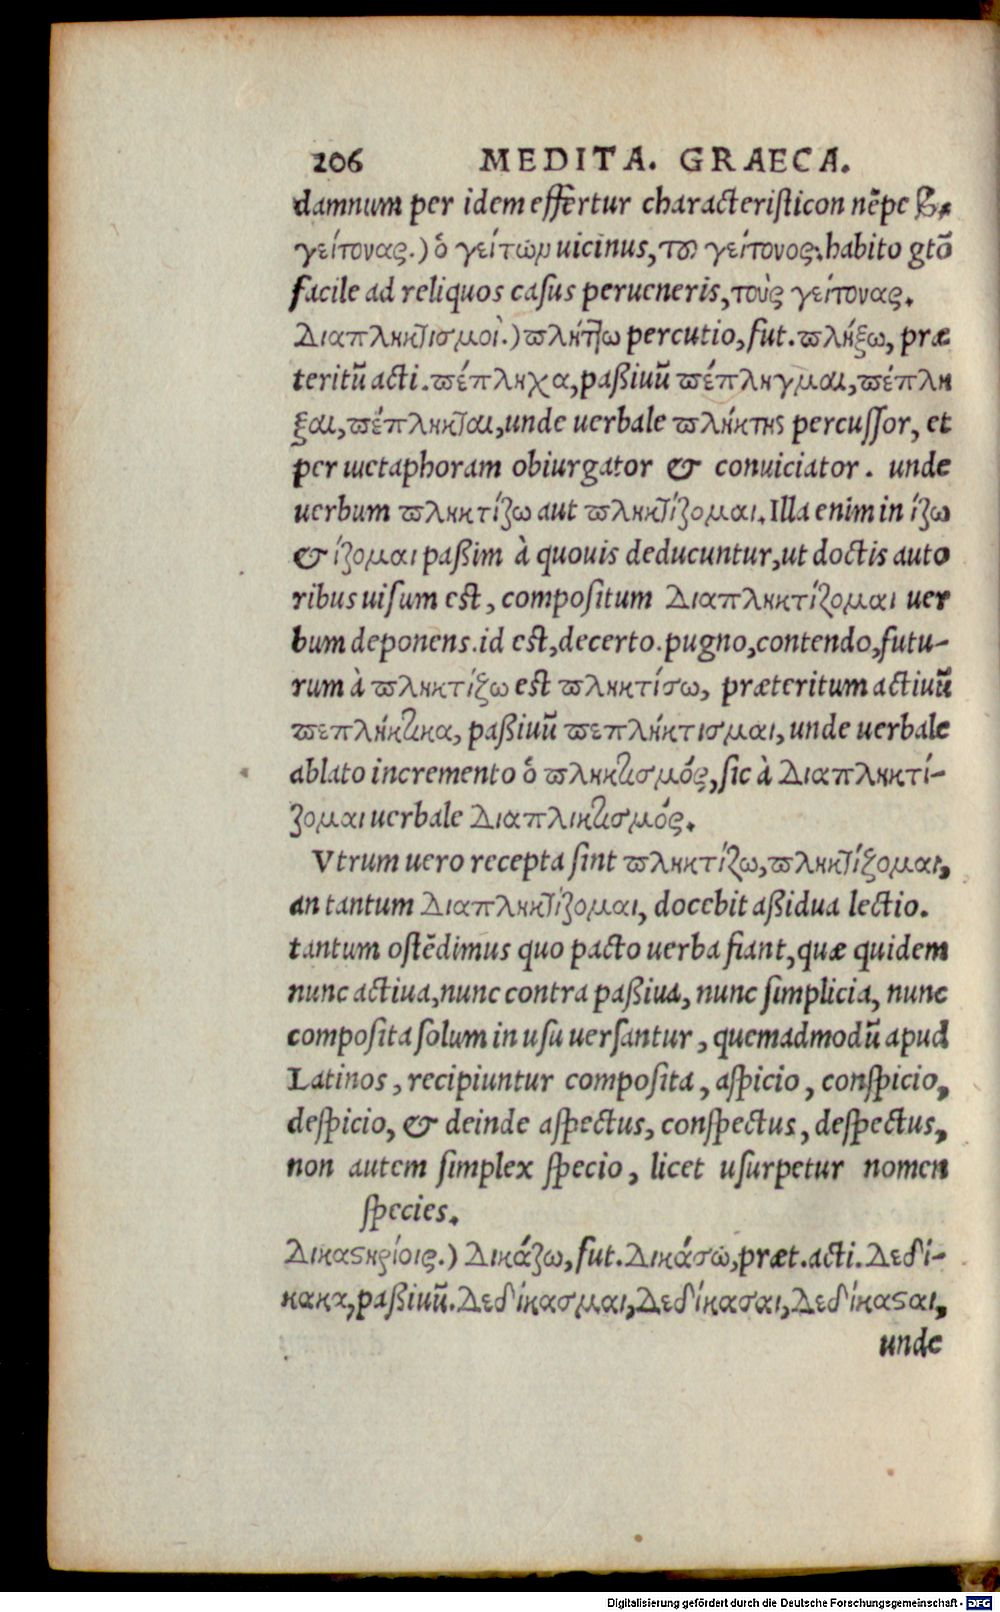 206 MEDITA. GRAECA.
damnum per idem effertur characteristicon nẽpe β,
γείτονας.) ὁ γείτων uicinus, τοῦ γείτονος, habito gtõ
facile ad reliquos casus perueneris, τοὺς γείτονας.
Διαπληκτισμοὶ.) πλήττω percutio, fut. πλήξω, præ
teritũ acti. πέπληχα, paßiuũ πέπληγμαι, πέπλη
ξαι, πέπληκται, unde uerbale πλήκτης percussor, et
per metaphoram obiurgator & conuiciator. unde
uerbum πληκτίζω aut πληκτίζομαι. Illa enim in ίζω
& ίζομαι paßim à quouis deducuntur, ut doctis auto
ribus uisum est, compositum Διαπληκτίζομαι uer
bum deponens. id est, decerto. pugno, contendo, futu-
rum à πληκτίζω est πληκτίσω, præteritum actiuũ
πεπλήκτικα, paßiuũ πεπλήκτισμαι, unde uerbale
ablato incremento ὁ πληκτισμός, sic à Διαπληκτί-
ζομαι uerbale Διαπλικτισμός.
Vtrum uero recepta sint πληκτίζω, πληκτίζομαι,
an tantum Διαπληκτίζομαι, docebit aßidua lectio.
tantum ostẽdimus quo pacto uerba fiant, quæ quidem
nunc actiua, nunc contra paßiua, nunc simplicia, nunc
composita solum in usu uersantur, quemadmodũ apud
Latinos, recipiuntur composita, aspicio, conspicio,
despicio, & deinde aspectus, conspectus, despectus,
non autem simplex specio, licet usurpetur nomen
species.
Δικαϛηρίοις.) Δικάζω, fut. Δικάσω, præt. acti. Δεδί-
κακα, paßiuũ. Δεδίκασμαι, Δεδίκασαι, Δεδίκαϛαι,
unde
Digitalisierung gefördert durch die Deutsche Forschungsgemeinschaft - DFG